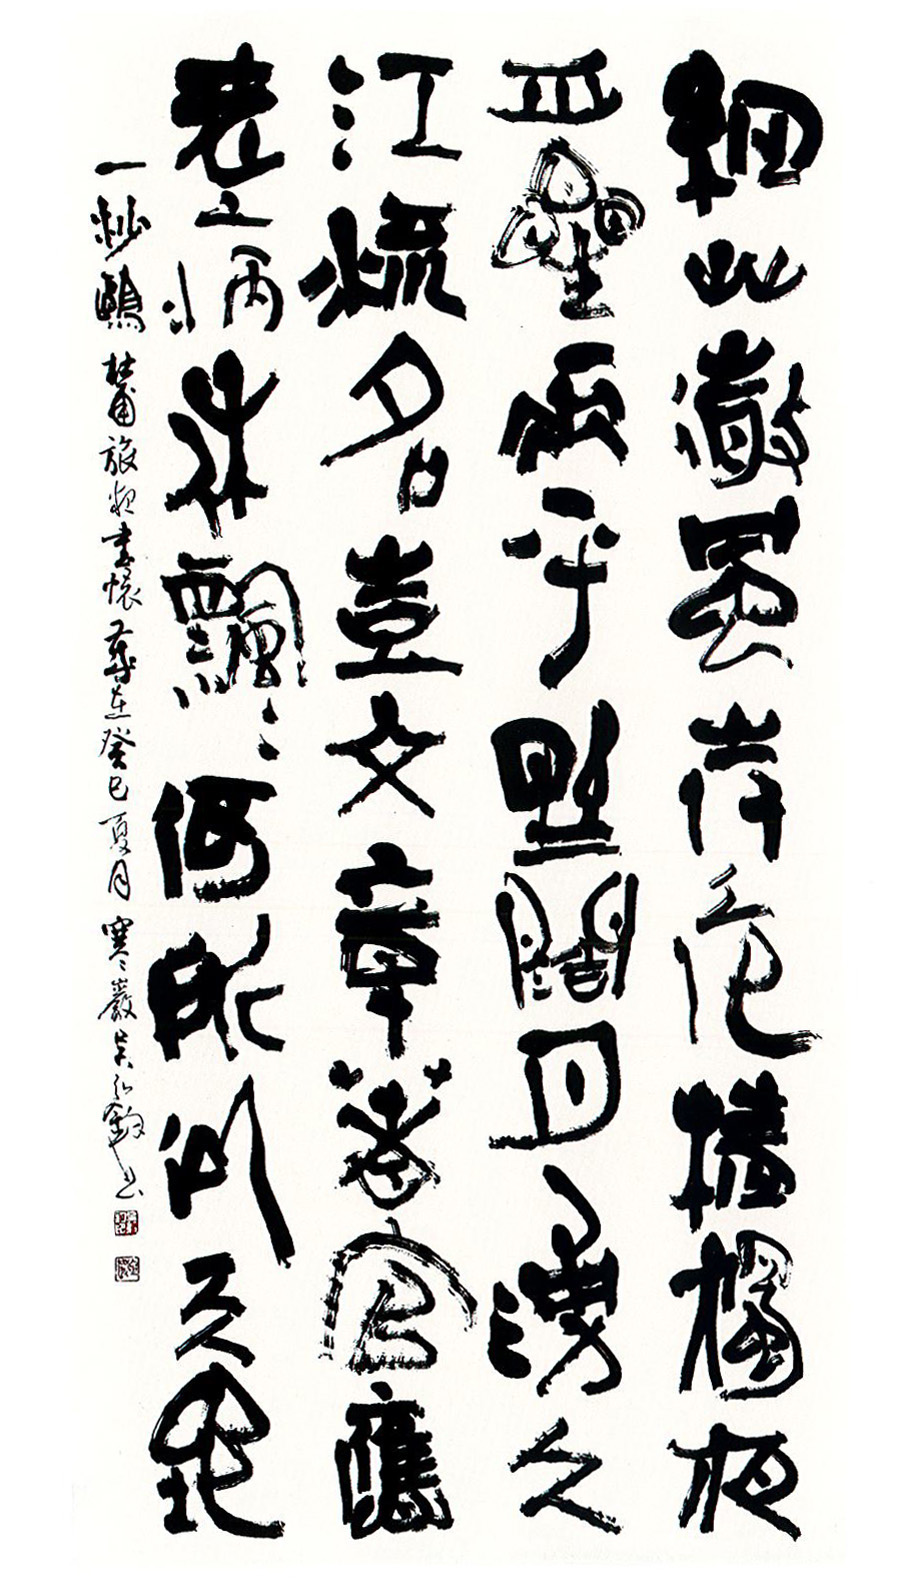 細艸微風岸危檣獨夜
舟星垂平野闊月湧大
江流名豈文章著官應
老病休飄〻何所似天地
一沙鷗 杜甫旅夜書懷 歲在癸巳夏月 寒巖吴弘鈞书